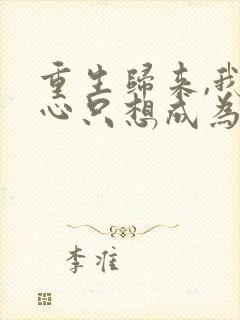 重生歸来,我
心只想成為
李准